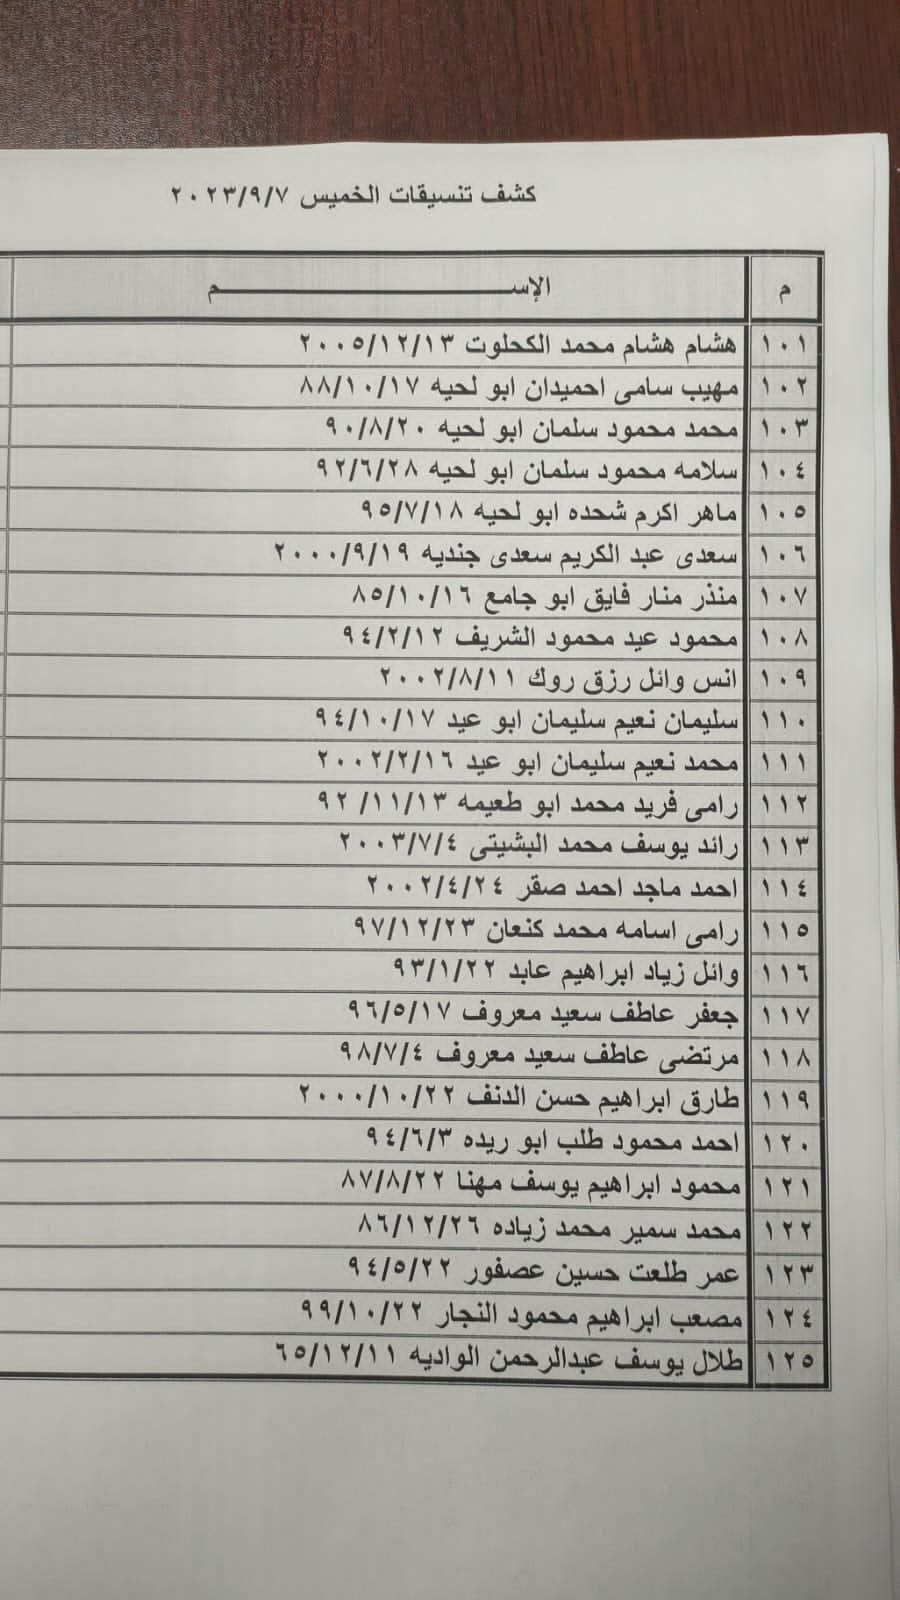 كشف تنسيقات الخميس ٢٠٢٣/٩/٧
م الإســــــــــــم
١٠١ هشام هشام محمد الكحلوت ٢٠٠٥/١٢/١٣
١٠٢ مهيب سامى احميدان ابو لحيه ٨٨/١٠/١٧
١٠٣ محمد محمود سلمان ابو لحيه ٩٠/٨/٢٠
١٠٤ سلامه محمود سلمان ابو لحيه ٩٢/٦/٢٨
١٠٥ ماهر اكرم شحده ابو لحيه ٩٥/٧/١٨
١٠٦ سعدى عبد الكريم سعدى جنديه ٢٠٠٠/٩/١٩
١٠٧ منذر منار فايق ابو جامع ٨٥/١٠/١٦
١٠٨ محمود عيد محمود الشريف ٩٤/٢/١٢
١٠٩ انس وائل رزق روك ٢٠٠٢/٨/١١
١١٠ سليمان نعيم سليمان ابو عيد ٩٤/١٠/١٧
١١١ محمد نعيم سليمان ابو عيد ٢٠٠٢/٢/١٦
١١٢ رامى فريد محمد ابو طعيمه ٩٢/١١/١٣
١١٣ رائد يوسف محمد البشيتى ٢٠٠٣/٧/٤
١١٤ احمد ماجد احمد صقر ٢٠٠٢/٤/٢٤
١١٥ رامى اسامه محمد كنعان ٩٧/١٢/٢٣
١١٦ وائل زياد ابراهيم عابد ٩٣/١/٢٢
١١٧ جعفر عاطف سعيد معروف ٩٦/٥/١٧
١١٨ مرتضى عاطف سعيد معروف ٩٨/٧/٤
١١٩ طارق ابراهيم حسن الدنف ٢٠٠٠/١٠/٢٢
١٢٠ احمد محمود طلب ابو ريده ٩٤/٦/٣
١٢١ محمود ابراهيم يوسف مهنا ٨٧/٨/٢٢
١٢٢ محمد سمير محمد زياده ٨٦/١٢/٢٦
١٢٣ عمر طلعت حسين عصفور ٩٤/٥/٢٢
١٢٤ مصعب ابراهيم محمود النجار ٩٩/١٠/٢٢
١٢٥ طلال يوسف عبدالرحمن الواديه ٦٥/١٢/١١